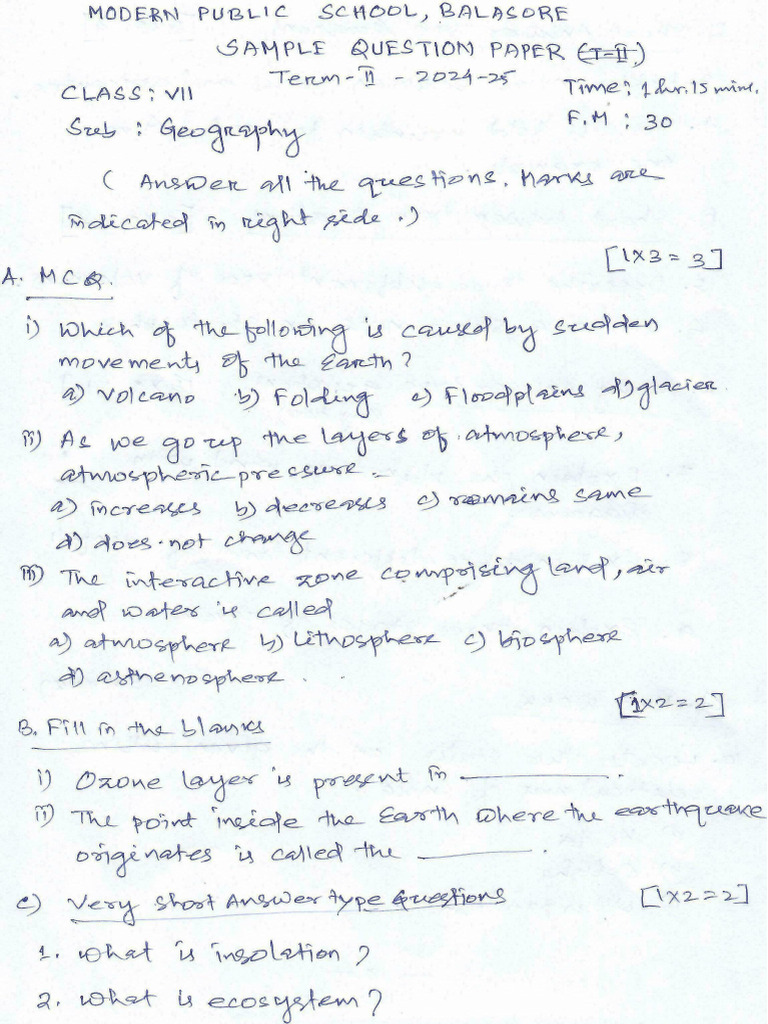 MODERN PUBLIC SCHOOL, BALASORE
SAMPLE QUESTION PAPER (T-II)
Term-II - 2024-25
CLASS: VII
Time: 1 hr. 15 mins.
Sub : Geography
F.M : 30
( Answer all the questions. Marks are
indicated in right side.)
[1x3 = 3]
A. MCQ.
i) Which of the following is caused by sudden
movements of the Earth?
a) Volcano b) Folding c) Floodplains d) glacier.
ii) As we go up the layers of atmosphere,
atmospheric pressure.
a) increases b) decreases c) remains same
d) does not change
iii) The interactive zone comprising land, air
and water is called
a) atmosphere b) Lithosphere c) biosphere
d) asthenosphere.
[1x2 = 2]
B. Fill in the blanks
i) Ozone layer is present in ________.
ii) The point inside the Earth where the earthquake
originates is called the ________.
c) Very short Answer type Questions [1x2=2]
1. What is insolation?
2. What is ecosystem?